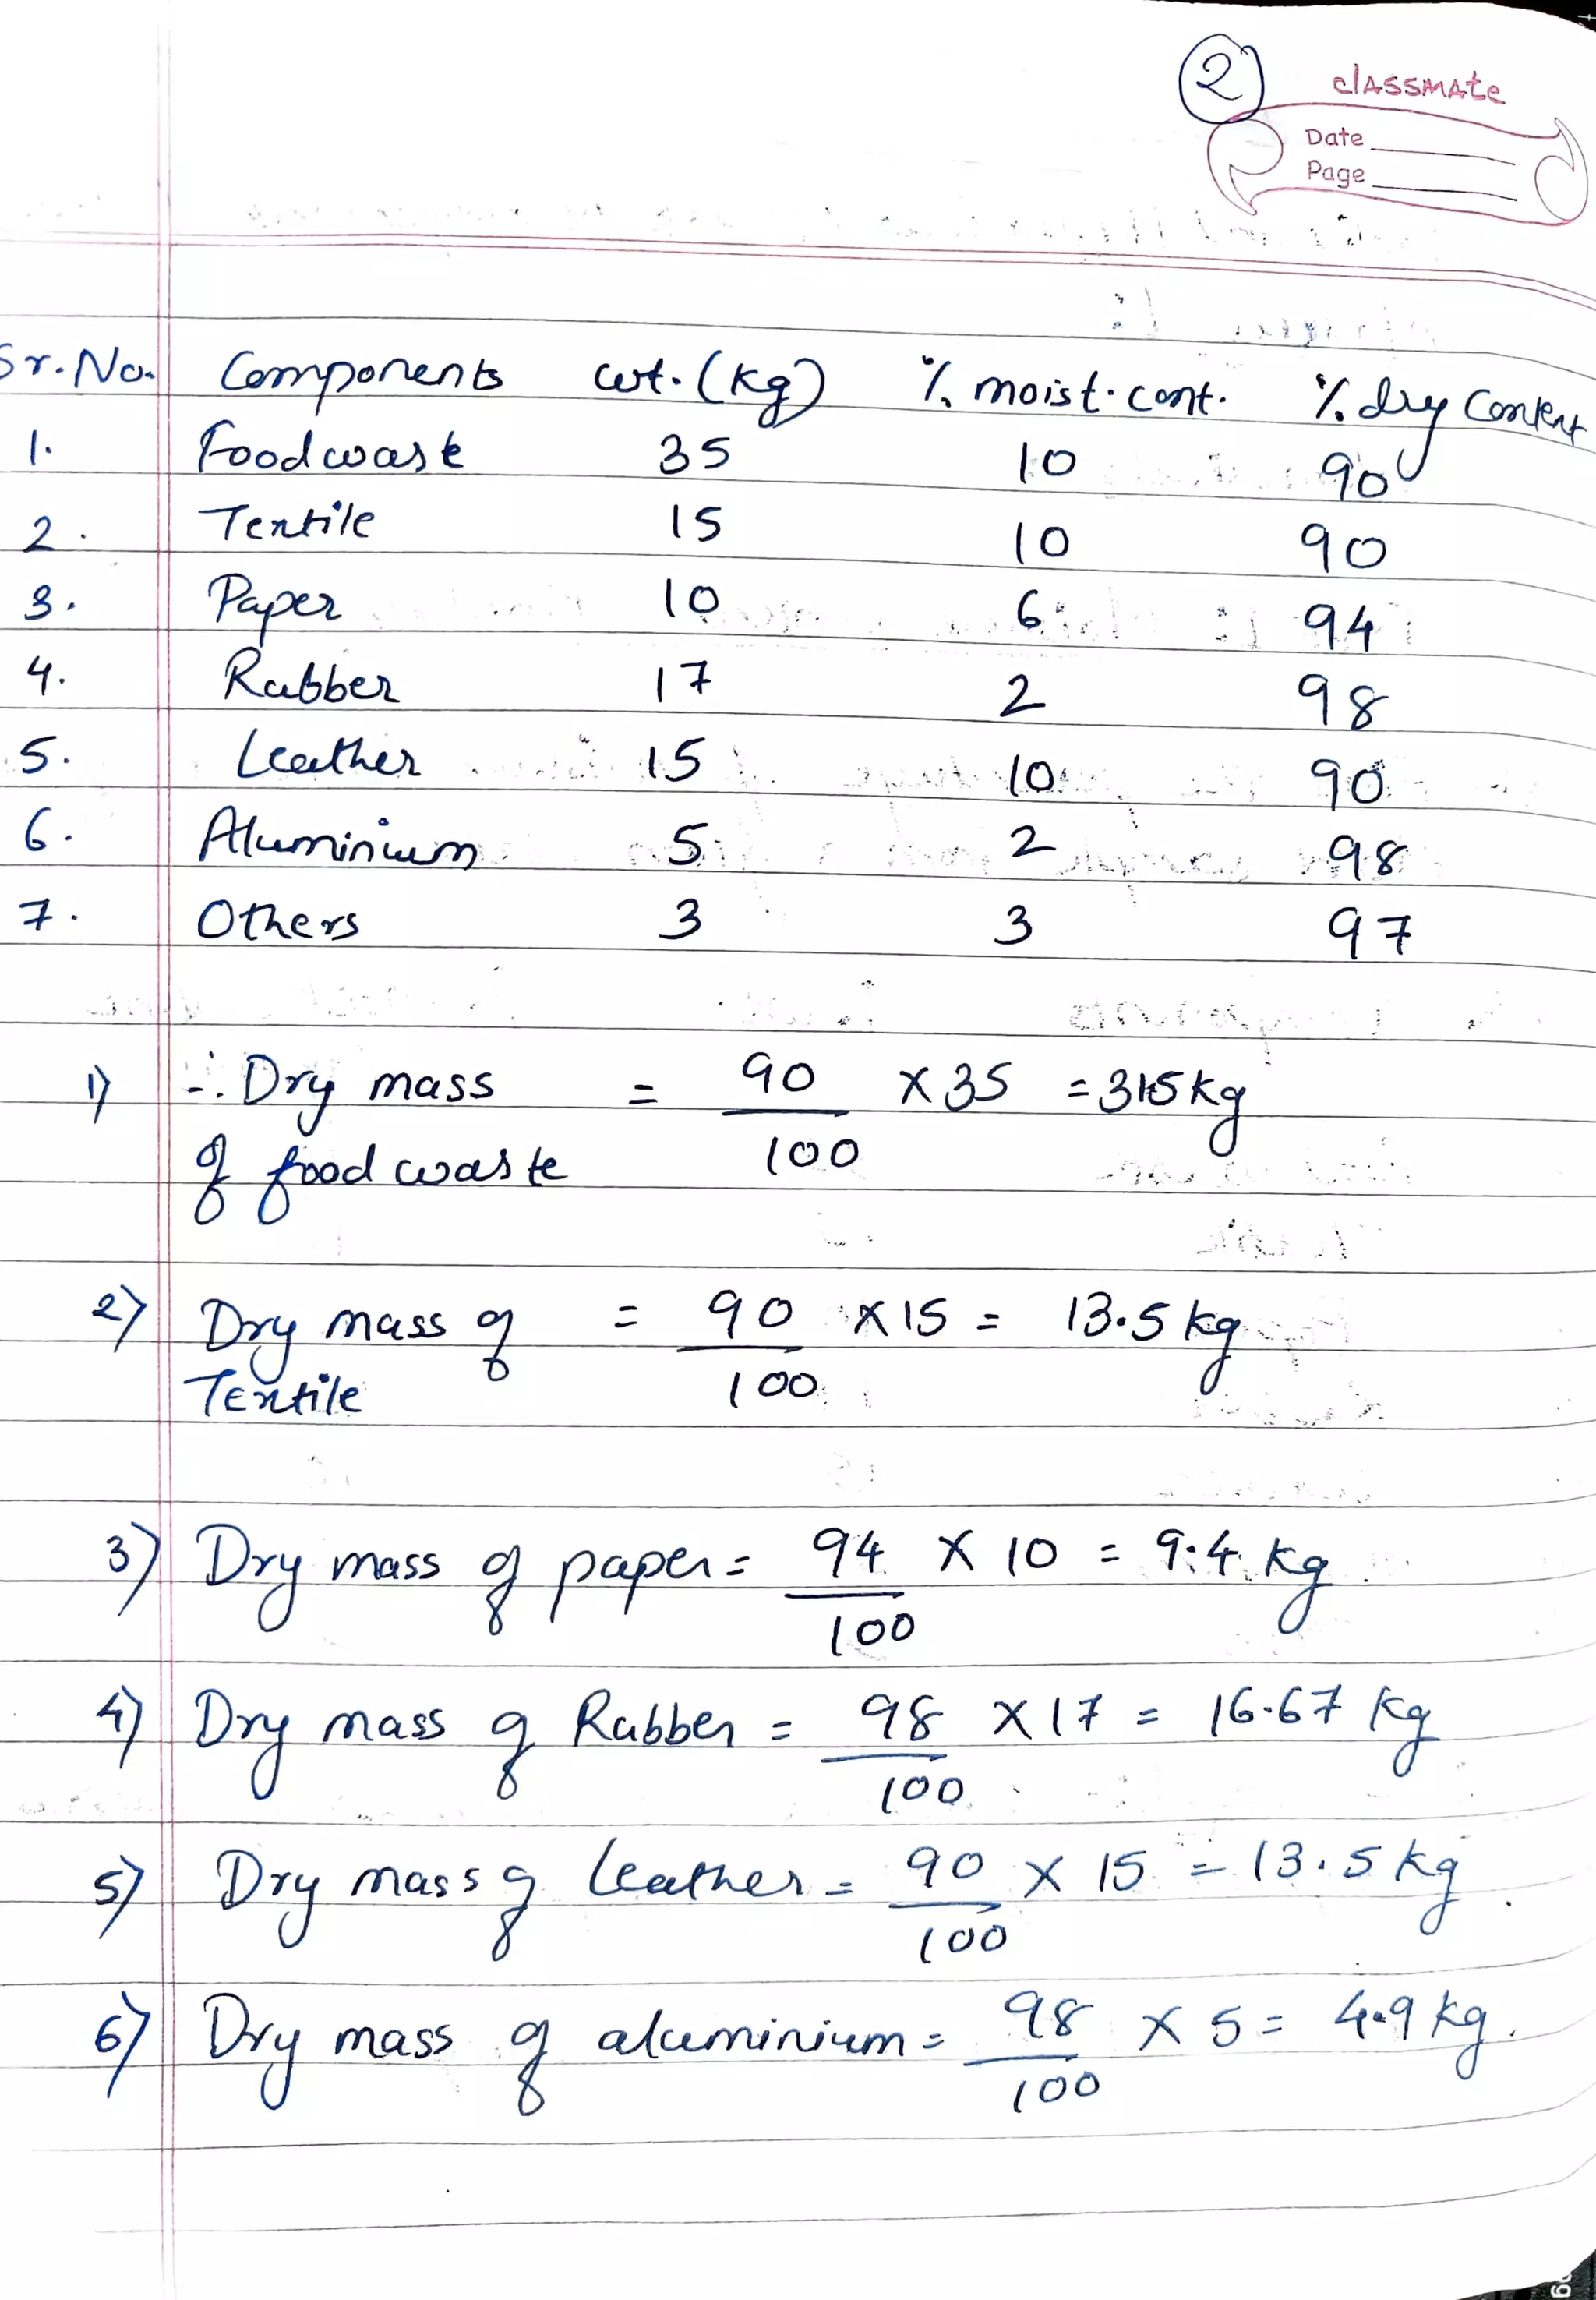 2
classmate
Date
Page
Sr. No. Components wt. (kg) % moist. cont. % dry Content
1. Food waste 35 10 90
2. Textile 15 10 90
3. Paper 10 6 94
4. Rubber 17 2 98
5. Leather 15 10 90
6. Aluminium 5 2 98
7. Others 3 3 97
1) ∴ Dry mass = 90 × 35 = 31.5 kg
of food waste 100
2) Dry mass of = 90 × 15 = 13.5 kg
Textile 100
3) Dry mass of paper = 94 × 10 = 9.4 kg
100
4) Dry mass of Rubber = 98 × 17 = 16.67 kg
100
5) Dry mass of Leather = 90 × 15 = 13.5 kg.
100
6) Dry mass of aluminium = 98 × 5 = 4.9 kg.
100